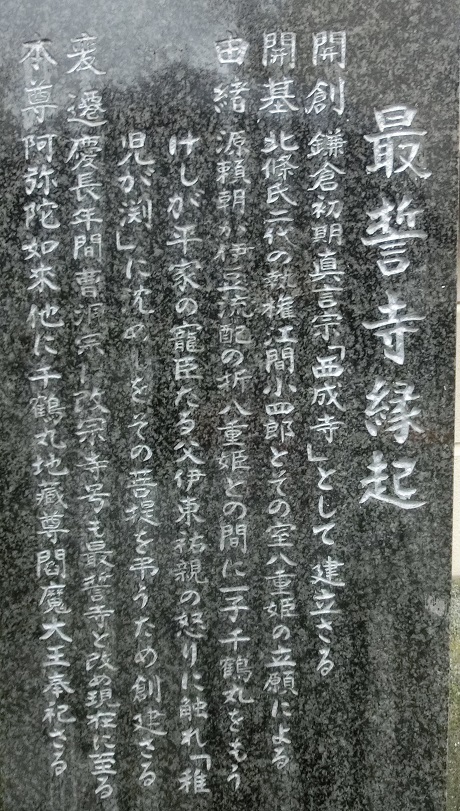 最誓寺縁起
開創 鎌倉初期真言宗「西成寺」として建立さる
開基 北條氏二代の執権江間小四郎とその室八重姫の立願による
由緒 源頼朝が伊豆流配の折八重姫との間に一子千鶴丸をもう
けしが平家の寵臣たる父伊東祐親の怒りに触れ「稚
児が渕」に沈めしをその菩提を弔うため創建さる
変遷 慶長年間曹洞宗に改宗寺号も最誓寺と改め現在に至る
本尊 阿弥陀如来他に千鶴丸地蔵尊閻魔大王奉祀さる